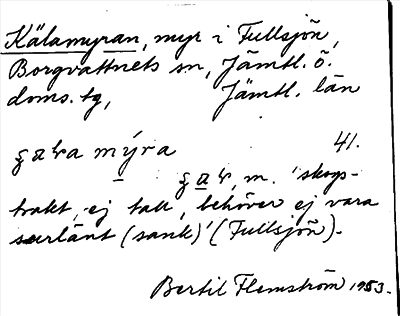 Kälamyran, myr i Fullsjön,
Borgvattnets sn, Jämtl. ö.
doms. tg, Jämtl. län
mýra 41.
m. 'skogs-
trakt, ej tall, behöver ej vara
surlänt (sank)' (Fullsjön).
Bertil Flemström 1953.